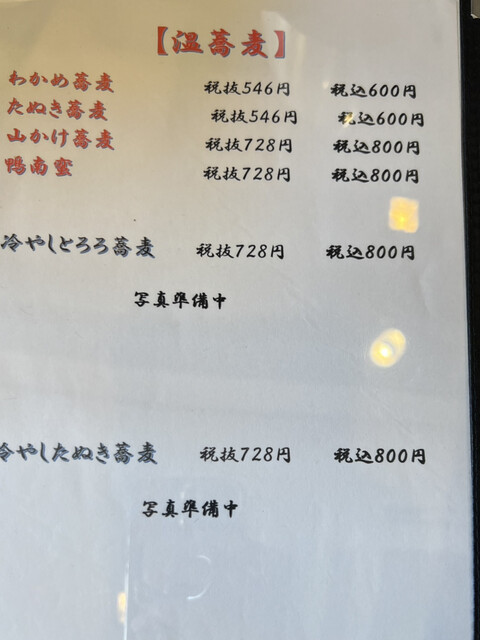 【温蕎麦】
わかめ蕎麦 税抜546円 税込600円
たぬき蕎麦 税抜546円 税込600円
山かけ蕎麦 税抜728円 税込800円
鴨南蛮 税抜728円 税込800円
冷やしとろろ蕎麦 税抜728円 税込800円
写真準備中
冷やしたぬき蕎麦 税抜728円 税込800円
写真準備中